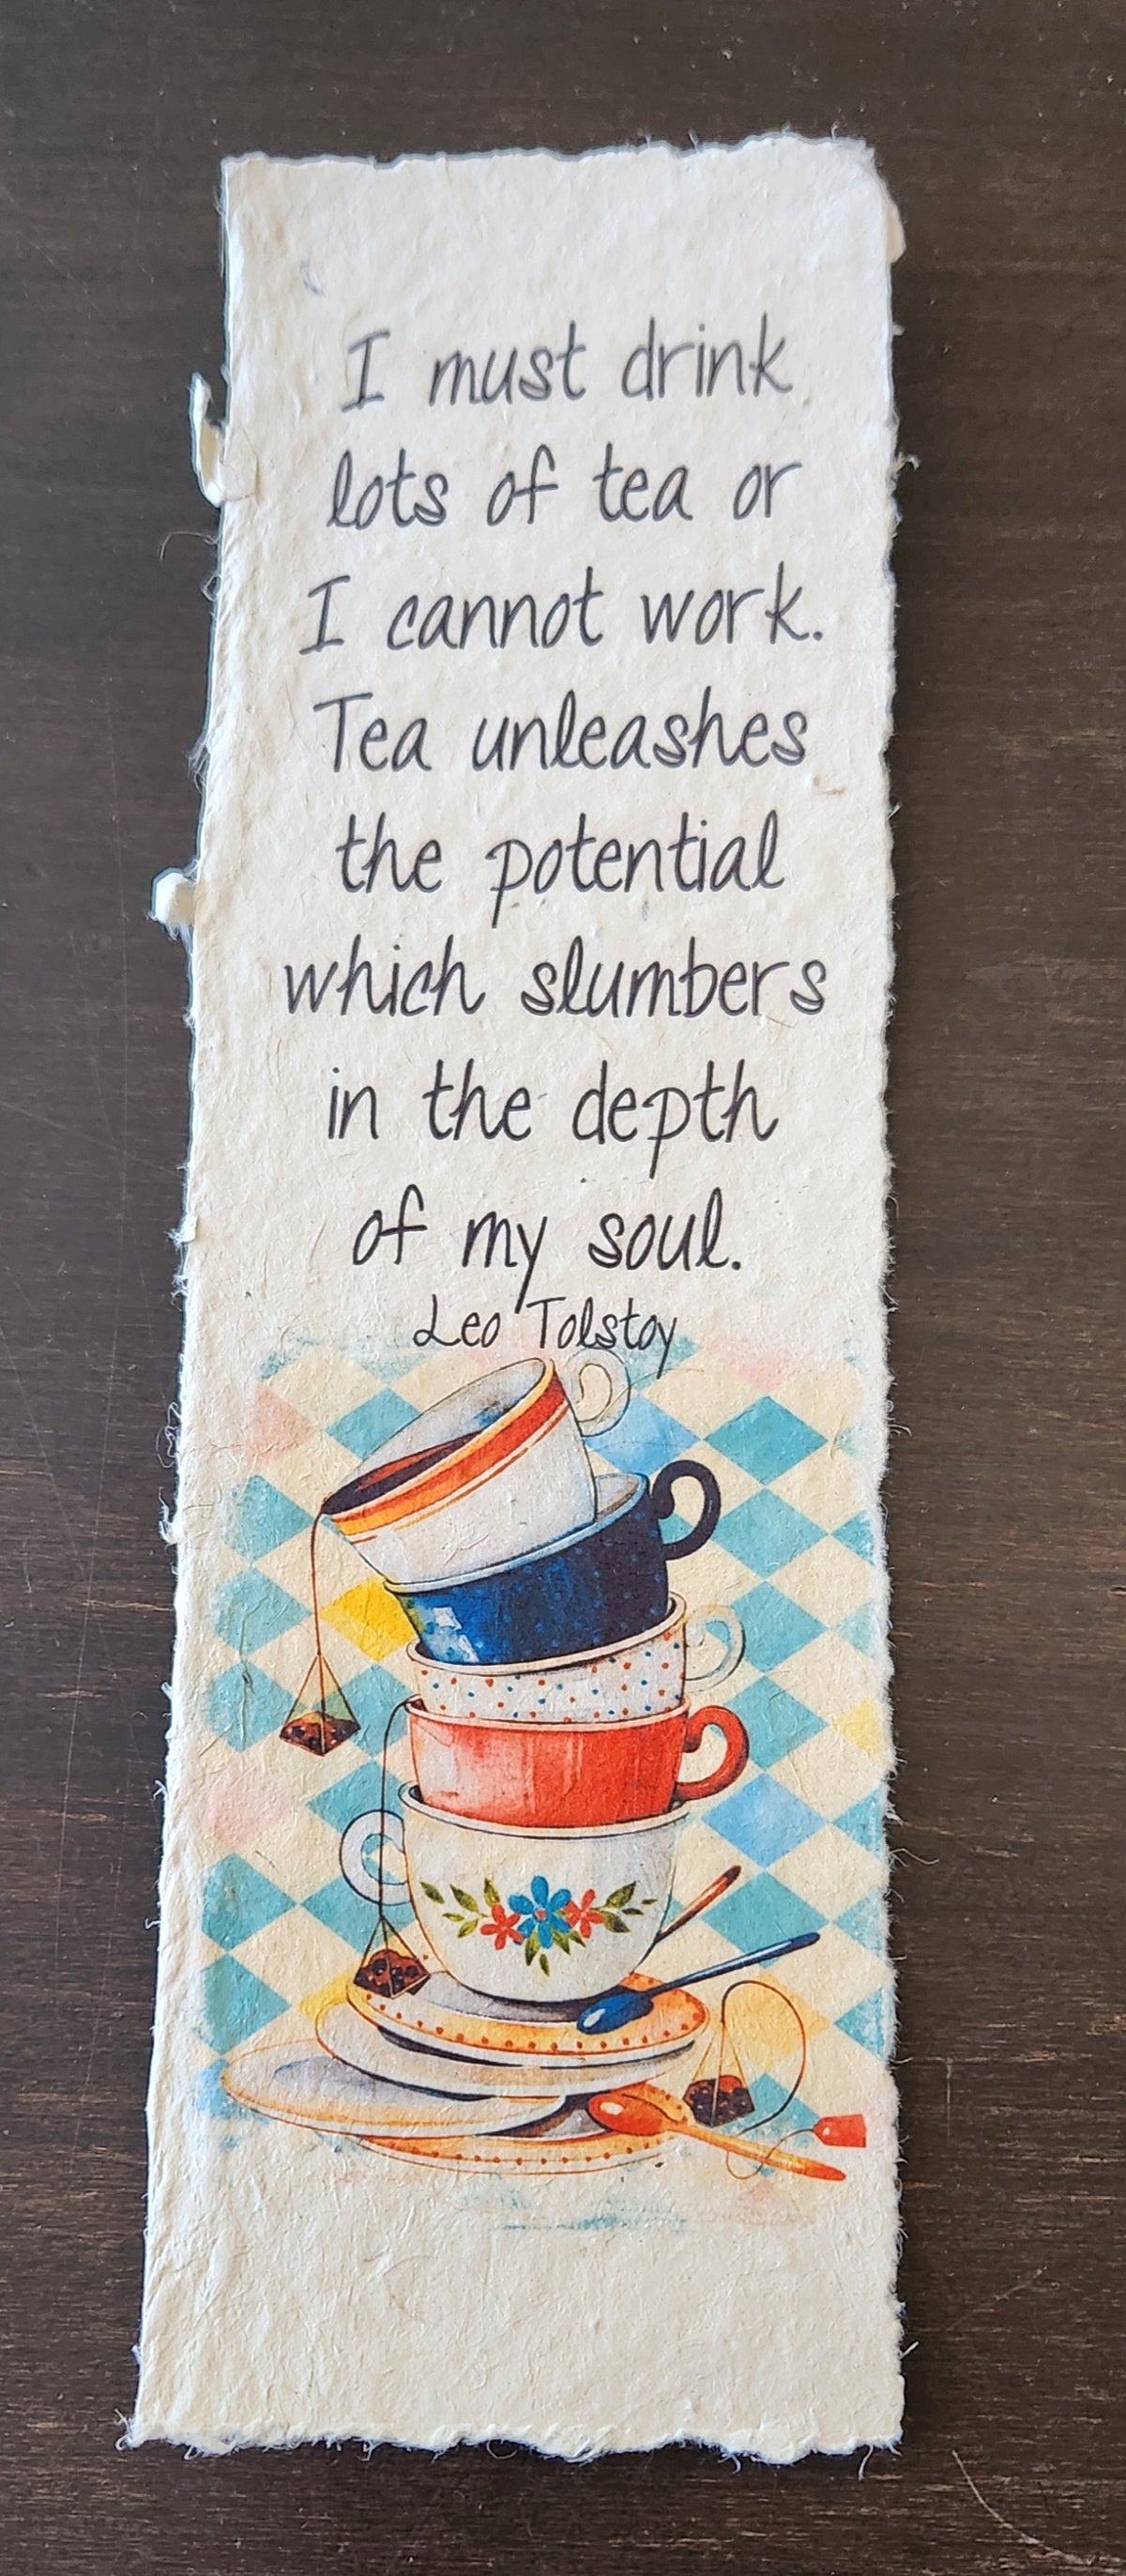 I must drink
lots of tea or
I cannot work.
Tea unleashes
the potential
which slumbers
in the depth
of my soul.
Leo Tolstoy